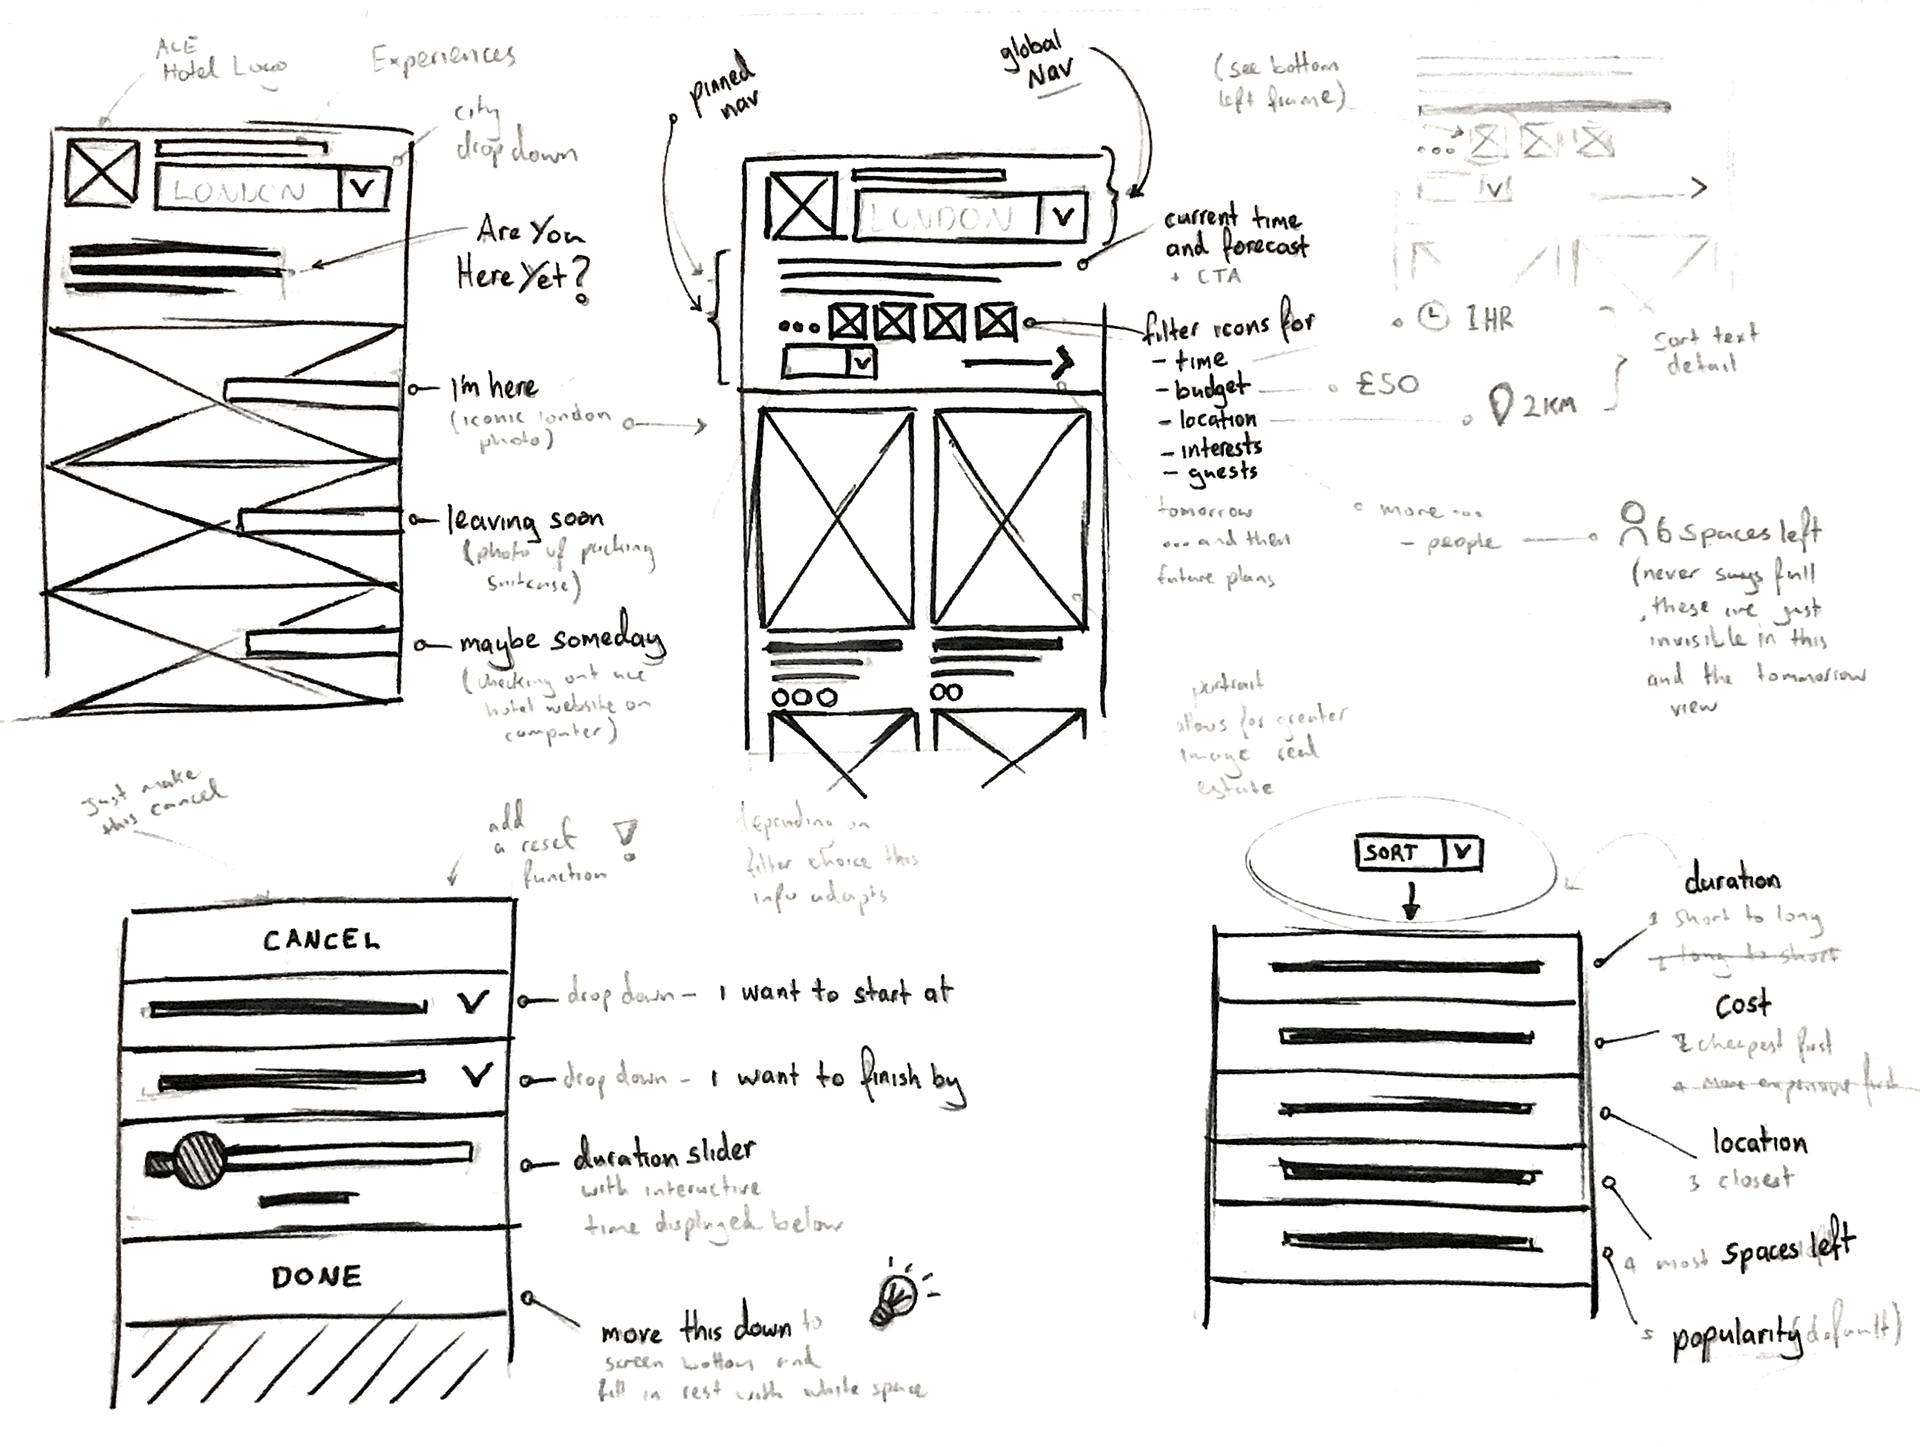 ACE
Hotel Logo
Experiences
city
drop down
LONDON
Are You
Here Yet?
I'm here
(iconic london
photo)
leaving soon
(photo of packing
suitcase)
maybe someday
(checking out
hotel website on
computer)
pinned
nav
global
Nav
LONDON
current time
and forecast
+ CTA
filter icons for
- time
- budget
- location
- interests
- guests
tomorrow
... and then
future plans
(see bottom
left frame)
1 HR
£50
2 KM
Sort text
detail
more ...
- people
6 spaces left
(never says full
, these are just
invisible in this
and the tommorrow
view
portrait
allows for greater
image real
estate
depending on
filter choice this
info adapts
just make
this cancel
add
a reset
function
!
CANCEL
drop down - I want to start at
drop down - I want to finish by
duration slider
with interactive
time displayed below
DONE
move this down to
screen bottom and
fill in rest with white space
SORT
duration
1 short to long
long to short
cost
2 cheapest first
more expensive first
location
3 closest
4 most spaces left
5 popularity (default)